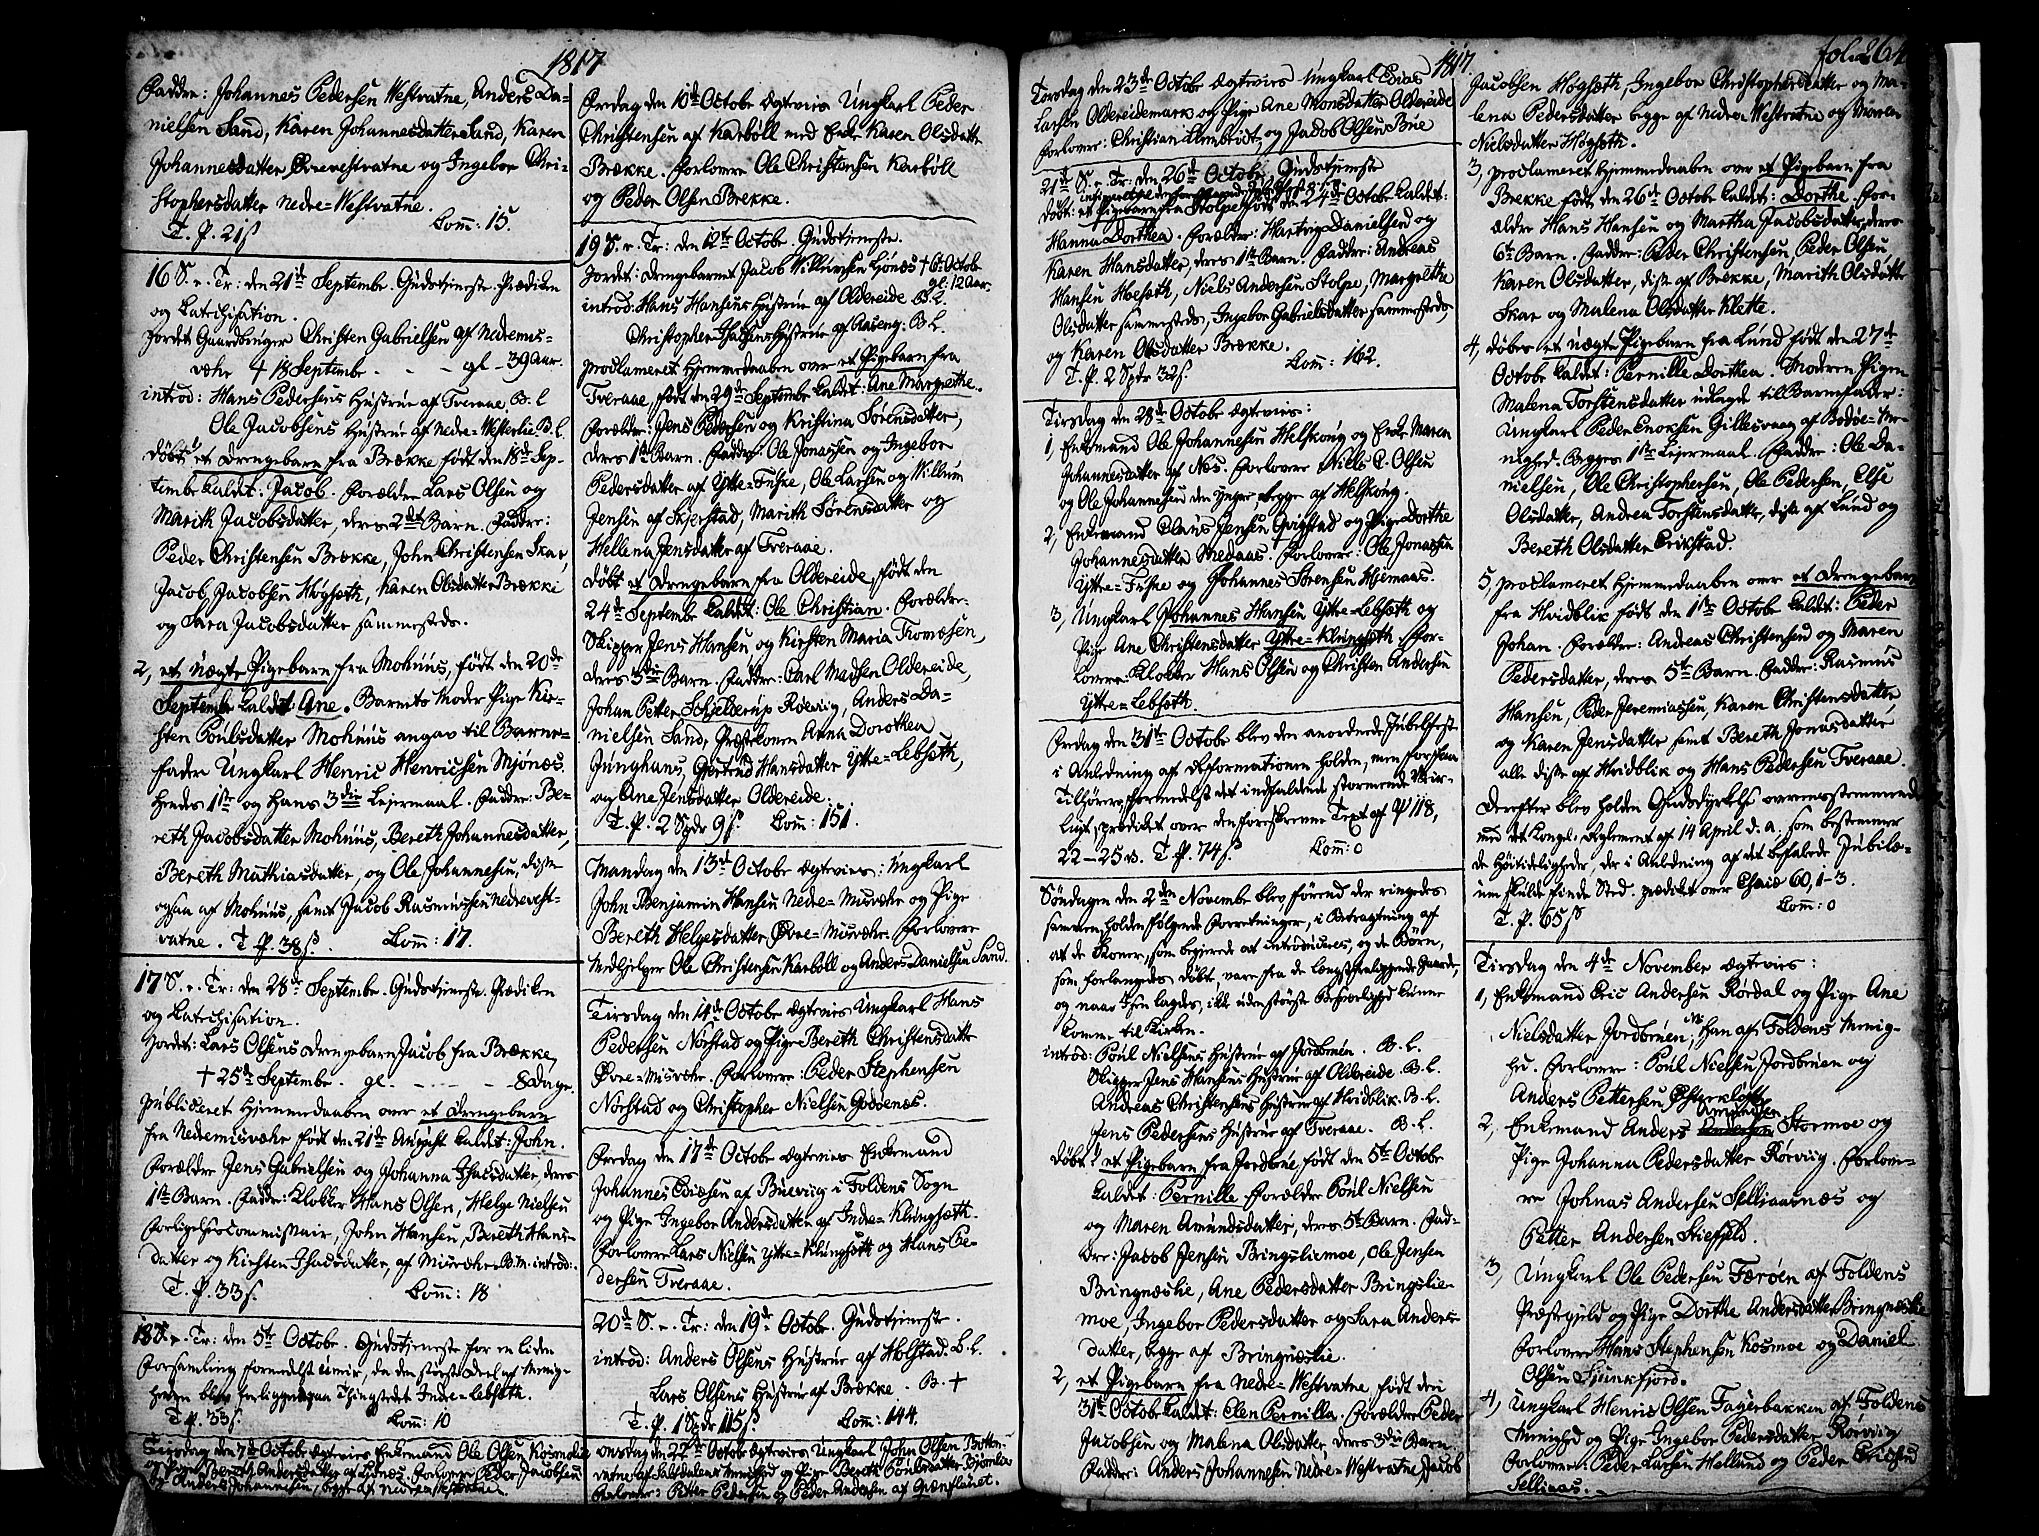 1817
Faddre: Johannes Pedersen Westvatne, Anders Da-
nielsen Sand, Karen Johannesdatter Sand, Karen
Johannesdatter Øvrevestvatne og Ingebor Chri-
stophersdatter Nedre-Westvatne.
T. P. 21 s Com: 15.
16 S. e. Tr: den 21de Septembr. Gudstjeneste. Prædiken
og Catechisation.
Jordet Gaardbruger Christen Gabrielsen af Nedremis-
væhr † 18 Septembr - - - gl - 39 Aar.
introd: Hans Pedersens Hustrue af Tveraae. B. L
Ole Jacobsens Hustrue af Nedre-Westerlie. B. L.
Døbt: et Drengebarn fra Brække født den 18de Sep-
tembr kaldet: Jacob. Forældre Lars Olsen og
Marith Jacobsdatter, deres 2det Barn. Faddre:
Peder Christensen Brække, John Christensen Skar,
Jacob Jacobsen Høgseth, Karen Olsdatter Brække
og Sara Jacobsdatter sammesteds.
2, et uægte Pigebarn fra Mohuus, født den 20de
Septembr kaldet Ane. Barnets Moder Pige Kir-
sten Poulsdatter Mohuus angav til Barne-
fader Ungkarl Henric Henricsen Mjønes.
Hendes 1ste og Hans 3die Leiermaal. Faddre: Be-
reth Jacobsdatter Mohuus, Bereth Johannesdatter,
Bereth Mathiasdatter, og Ole Johannesen, disse
ogsaa af Mohuus, samt Jacob Rasmussen Nedrevest-
vatne. T. P. 38 s. Com: 17.
17 S. e. Tr: den 28de Septembr. Gudstjeneste. Prædiken
og Catechisation.
Jordet: Lars Olsens Drengebarn Jacob fra Brække,
† 25de Septembr. gl. - - - - 8 Dage.
publiceret Hjemmedaaben over et Drengebarn
fra Nedremisvæhr født den 21de August kaldet: John.
Forældre Jens Gabrielsen og Johanna Isacsdatter, deres
1ste Barn. Faddre: Klokker Hans Olsen, Helge Nielsen
Forligelsescommissair, John Hansen, Bereth Hans-
datter og Kirsten Isacsdatter, af Misvæhr. B. M. introd:
T. P. 33 s. Com: 18
18 S. e. Tr: den 5te Octobr. Gudstjeneste for en liden
Forsamling formedelst Uveir, da den største Deel af Menig-
heden blev henliggende paa Thingstedet Indre-Lebsøth.
T. P. 33 s. Com: 10
Tiirsdag den 7de Octobr ægtevies Enkemand Ole Olsen Kosmolie
og Pige Bereth Andersdatter af Ljønes. Forlovere Peder Jacobsen
og Anders Johannesen, begge af Nedrevestvatne.
Fredag den 10de Octobr ægtevies Ungkarl Peder
Christensen af Karbøll med Enke Karen Olsdatter
Brække. Forlovere Ole Christensen Karbøll
og Peder Olsen Brekke.
19 S. e. Tr: den 12te Octobr. Gudstjeneste.
Jordet: Drengebarnet Jacob Willumsen Ljønes † 6te Octobr
gl: 12 Aar.
introd: Hans Hansens Hustrue af Oldereide. B. L.
Christopher Isacsens Hustrue af Aaseng: B. L.
proclameret Hjemmedaaben over et Pigebarn fra
Tveraae, født den 29de Septembr kaldet: Ane Margrethe.
Forældre: Jens Pedersen og Kristina Sørensdatter,
deres 1ste Barn. Faddre: Ole Jonassen og Ingebor
Pedersdatter af Ytte-Fuske, Ole Larsen og Willum
Jensen af Skjerstad, Marith Sørensdatter og
Hellena Jensdatter af Tveraae.
Døbt et Drengebarn fra Oldereide, født den
24de Septembr kaldet: Ole Christian. Forældre:
Skipper Jens Hansen og Kirsten Maria Thomsen,
deres 3die Barn. Faddre: Carl Madsen Oldereide,
Johan Petter Schjelderup Røevig, Anders Da-
nielsen Sand, Præstekonen Anna Dorothea
Junghans, Gjertrud Hansdatter Ytte-Lebsøth,
og Ane Jensdatter Oldereide.
T. P. 2 Spdr 9 s. Com: 151.
Mandag den 13de Octobr ægtevies: Ungkarl
John Benjamin Hansen Nedre-Misvæhr og Pige
Bereth Helgesdatter Øvre-Misvæhr. Forlovere
Medhjelper Ole Christensen Karbøll og Anders Danielsen Sand.
Tirsdag den 14de Octobr ægtevies Ungkarl Hans
Pedersen Nørstad og Pige Bereth Christensdatter
Øvre-Misvæhr. Forlovere: Peder Stephensen
Nørstad og Christopher Nielsen Godøenæs.
Fredag den 17de Octobr ægtevies Enkemand
Johannes Ediæsen af Buevig i Foldens Sogn
og Pige Ingebor Andersdatter af Indre-Klungseth.
Forlovere Lars Nielsen Ytte-Klungsøth og Hans Pe-
dersen Tveraae.
20de S. e. Tr: den 19de Octobr. Gudstjeneste.
introd: Anders Olsens Hustrue af Holstad. B. L.
Lars Olsens Hustrue af Brække. B. †
T. P. 1 Spdr 115 s Com: 144.
Onsdag den 22de Octobr ægtevies Ungkarl John Olsen Botten-
vatne af Saltdalens Menighed og Pige Bereth Poulsdatter Bjørnlie
Forlovere: Petter Pedersen og Peder Andersen af Grønflauet.
1817
fol: 264
Torsdag den 23de Octobr ægtevies Ungkarl Edias
Larsen Oldereidemark og Pige Ane Monsdatter Oldereide
Forlovere: Christian Armstidt og Jacob Olsen Bue
21de S. e. Tr: den 26de Octobr. Gudstjeneste
Døbt: et Pigebarn fra Stolpe født den 24de Octobr kaldet:
Hanna Dorthea. Forældre: Hartvig Danielsen og
Karen Hansdatter, deres 1ste Barn. Faddre: Andreas
Hansen Høeseth, Niels Andersen Stolpe, Margrethe
Olsdatter sammesteds, Ingebor Gabrielsdatter sammesteds,
og Karen Olsdatter Brække.
T. P. 2 Spdr 32 s. Com: 162.
Tirsdag den 28de Octobr ægtevies:
1, Enkemand Ole Johannesen Helskoug og Enke Maren
Johannesdatter af Næs. Forlovere Niels C. Olsen
og Ole Johannesen den Yngre, begge af Helskoug.
2, Enkemand Claus Jensen Qvigstad og Pige Dorthe
Johannesdatter Medaas. Forlovere: Ole Jonassen
Ytte-Fuske og Johannes Sørensen Hjemaas.
3, Ungkarl Johannes Hansen Ytte-Lebsøth og
Pige Ane Christensdatter Ytte-Klungsøth. For-
lovere: Klokker Hans Olsen og Christen Andersen
Ytte-Lebsøth.
Fredag den 31te Octobr blev den anordnede Jubelfest
i Anledning af Reformationen holden, men forsaa
Tilhørere formedelst det indfaldende stormende Veir-
ligt, prædiket over den foreskrevne Text af Ψ 118,
22-25 v. T. P. 74 s. Com: 0
Søndagen den 2den November blev førend der ringedes
sammen holden følgende Forretninger, i Betragtning af
at de Koner, som begierede at introduceres, og de Børn,
som forlangedes døbt, vare fra de længstfraliggende Gaarde,
og naar hen lagdes, ikke uden største Besværlighed kunne
komme til Kirken.
introd: Poul Nielsens Hustrue af Jordbruen. B. L.
Skipper Jens Hansens Hustrue af Oldereide. B. L.
Andreas Christensens Hustrue af Hvidblik. B. L.
Jens Pedersens Hustrue af Tveraae. B. L.
Døbt: 1, et Pigebarn fra Jordbrue, født den 5te Octobr
kaldet: Pernille. Forældre Poul Nielsen
og Maren Amundsdatter, deres 5te Barn. Fad-
dre: Jacob Jensen Bringsliemoe, Ole Jensen
Bringneslie, Ane Pedersdatter Bringslie-
moe, Ingebor Pedersdatter og Sara Anders-
datter, begge af Bringneslie.
2, et Pigebarn fra Nedre-Westvatne, født den
31te Octobr kaldet: Elen Pernilla. Forældre Peder
Jacobsen og Malena Olsdatter, deres 3die Barn.
Faddre: Anders Johannesen Nedre-Westvatne, Jacob
Jacobsen Høgsøth, Ingebor Christophersdatter og Ma-
lena Pedersdatter begge af Nedre Westvatne og Maren
Nielsdatter Høgsøth.
3, proclameret Hjemmedaaben over et Pigebarn fra
Brekke født den 26de Octobr kaldet: Dorthe. For-
ældre Hans Hansen og Martha Jacobsdatter, deres
6te Barn. Faddre: Peder Christensen, Peder Olsen
Karen Olsdatter, disse af Brække, Marith Olsdatter
Skar og Malena Olsdatter Klette.
4, Døbes et uægte Pigebarn fra Lund født den 27de
Octobr kaldet: Pernille Dorthea. Moderen Pigen
Malena Torstensdatter udlagde til Barnefader:
Ungkarl Peder Enoksen Gillesvaag af Bodøe-Me-
nighed. Begges 1ste Lejermaal. Faddre: Ole Da-
nielsen, Ole Christophersen, Ole Pedersen, Else
Olsdatter, Andrea Torstensdatter, disse af Lund og
Bereth Olsdatter Erikstad.
5, proclameret Hjemmedaaben over et Drengebarn
fra Hvidblik født den 1ste Octobr kaldet: Peder
Johan. Forældre: Andreas Christensen og Maren
Pedersdatter, deres 5te Barn. Faddre: Rasmus
Hansen, Peder Jeremiassen, Karen Christensdatter
og Karen Jensdatter samt Bereth Jonasdatter
alle disse af Hvidblik og Hans Pedersen Tveraae.
Derefter blev holden Gudsdyrkelse overensstemmende
med det Kongel. Reglement af 14 April d. a. som bestemmer
de Høitideligheder, der i Anledning af det befalede Jubilæ-
um skulde finde Sted. prædiket over Esaia 60, 1-3.
T. P. 65 s Com: 0
Tirsdag den 4de November ægtevies:
1, Enkemand Eric Andersen Rørdal og Pige Ane
Nielsdatter Jordbruen, Han af Foldens Menig-
hed. Forlovere: Poul Nielsen Jordbruen og
Anders Pettersen Østerkløft.
2, Enkemand Anders Amundsen Stormoe og
Pige Johanna Pedersdatter Rørvig. Forlove-
re Johnas Andersen Selliaasnæs og
Petter Andersen Stiefjeld.
3, Ungkarl Ole Pedersen Færøen af Foldens
Præstegjeld og Pige Dorthe Andersdatter Bringneslie
Forlovere Hans Stephensen Kosmoe og Daniel
Olsen Sjunkfjord.
4, Ungkarl Henric Olsen Fagerbakken af Foldens
Menighed og Pige Ingebor Pedersdatter Rørvig
Forlovere: Peder Larsen Helland og Peder Ericsen
Selliaas.